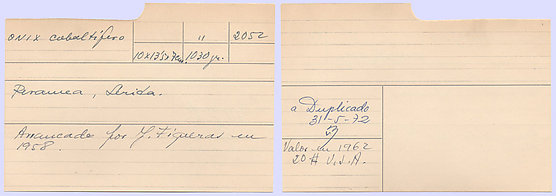 onix cobaltífero
"
2052
10x13'5x7cm.
1030gr.
Peramea, Lérida.
Arrancado por J. Figueras en
1958.
a Duplicado
31-5-72
Valor en 1962
20 # U.S.A.